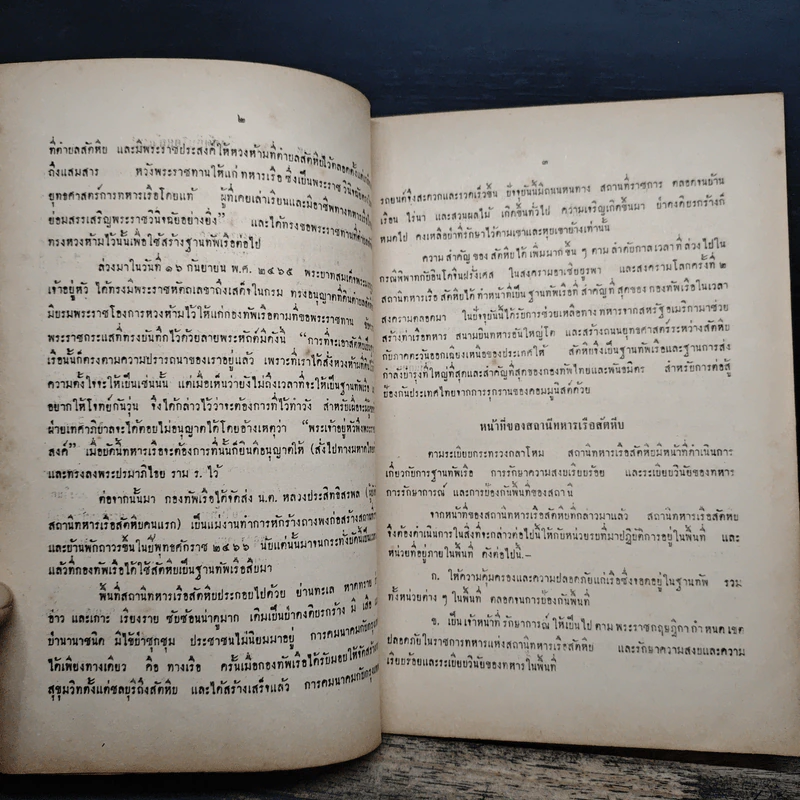 ๒
ที่ตำบลสัตหีบ และมีพระราชประสงค์ให้หวงห้ามที่ตำบลสัตหีบไว้ตลอดตั้งแต่
ถึงแสมสาร หวังพระราชทานให้แก่ทหารเรือ ซึ่งเป็นพระราชวินิจฉัย
ยุทธศาสตร์การทหารเรือโดยแท้ ผู้ที่เคยเล่าเรียนและมีอาชีพทางทหาร
ย่อมสรรเสริญพระราชวินิจฉัยอย่างยิ่ง” และได้ทรงขอพระราชทานที่ตำบล
ทรงหวงห้ามไว้นั้นเพื่อใช้สร้างฐานทัพเรือต่อไป
ล่วงมาในวันที่ ๑๖ กันยายน พ.ศ. ๒๔๖๕ พระบาทสมเด็จพระ
เจ้าอยู่หัว ได้ทรงมีพระราชหัตถเลขาถึงเสด็จในกรม ทรงอนุญาตที่ดินตำบลสัตหีบ
มีบรมพระราชโองการหวงห้ามไว้ให้แก่กองทัพเรือตามที่ขอพระราชทาน
พระราชกระแสที่ทรงบันทึกไว้ด้วยลายพระหัตถ์มีดังนี้ “การที่จะเอาสัตหีบ
เรือนั้นก็ตรงตามความปรารถนาของเราอยู่แล้ว เพราะที่เราได้สั่งหวงห้ามที่ดิน
ความตั้งใจจะให้เป็นเช่นนั้น แต่เมื่อเห็นว่ายังไม่ถึงเวลาที่จะให้เป็นฐานทัพเรือ
อยากให้โจทย์กันวุ่น จึงได้กล่าวไว้ว่าจะต้องการที่ไว้ทำวัง สำหรับเผื่อจะมี
ฝ่ายเทศาภิบาลจะได้ตอบไม่อนุญาตได้โดยอ้างเหตุว่า “พระเจ้าอยู่หัวพึ่งพระ
สงค์” เมื่อบัดนี้ทหารเรือจะต้องการที่นั้นก็ยินดีอนุญาตให้ (สั่งไปทางมหาดไทย
และทรงลงพระปรมาภิไธย ราม ร. ไว้
ต่อจากนั้นมา กองทัพเรือได้จัดส่ง น.ต. หลวงประสิทธิสรพล
สถานีทหารเรือสัตหีบคนแรก) เป็นแม่งานทำการหักร้างถางพงก่อสร้างสถานที่
และบ้านพักถาวรขึ้นในปีพุทธศักราช ๒๔๖๖ นับแต่นั้นมาจนกระทั่งบัดนี้เป็น
แล้วที่กองทัพเรือได้ใช้สัตหีบเป็นฐานทัพเรือสืบมา
พื้นที่สถานีทหารเรือสัตหีบประกอบไปด้วย ย่านทะเล หาดทราย
อ่าว และเกาะ เรียงราย ซับซ้อนน่าดูมาก เดิมเป็นป่าดงดิบรกร้าง มี เสือ
ป่านานาชนิด มีไข้ป่าชุกชุม ประชาชนไม่นิยมมาอยู่ การคมนาคมกับกรุง
ได้เพียงทางเดียว คือ ทางเรือ ครั้นเมื่อกองทัพเรือได้รับมอบให้จัดสร้าง
สุขุมวิทตั้งแต่ชลบุรีถึงสัตหีบ และได้สร้างเสร็จแล้ว การคมนาคมกับกรุงเทพ
๓
รถยนต์จึงสะดวกและรวดเร็วขึ้น ปัจจุบันนี้มีถนนหนทาง สถานที่ราชการ ตลอดจนบ้าน
เรือน ไร่นา และสวนผลไม้ เกิดขึ้นทั่วไป ความเจริญเกิดขึ้นมา ป่าดงดิบรกร้างก็
หมดไป คงเหลือป่าที่รักษาไว้ตามเขาและหุบเขาบางเท่านั้น
ความ สำคัญ ของ สัตหีบได้ เพิ่มมาก ขึ้น ๆ ตาม ลำดับกาล เวลา ที่ ล่วงไปใน
กรณีพิพาทกับอินโดจีนฝรั่งเศส ในสงครามอาเซียบูรพา และสงครามโลกครั้งที่ ๒
สถานีทหารเรือ สัตหีบได้ ทำหน้าที่เป็น ฐานทัพเรือที่ สำคัญที่ สุดของ กองทัพเรือในเวลา
สงครามตลอดมา ในปัจจุบันนี้ได้รับการช่วยเหลือทางทหารจากสหรัฐอเมริกามาช่วย
สร้างท่าเรือทหาร สนามบินทหารอันใหญ่โต และสร้างถนนยุทธศาสตร์ระหว่างสัตหีบ
กับภาคตะวันออกเฉียงเหนือของประเทศให้ สัตหีบจึงเป็นฐานทัพเรือและฐานการส่ง
กำลังบำรุงที่ใหญ่ที่สุดและสำคัญที่สุดของกองทัพไทยและพันธมิตร สำหรับการต่อสู้
ป้องกันประเทศไทยจากการรุกรานของคอมมูนิสต์ด้วย
หน้าที่ของสถานีทหารเรือสัตหีบ
ตามระเบียบกระทรวงกลาโหม สถานีทหารเรือสัตหีบมีหน้าที่ดำเนินการ
เกี่ยวกับการฐานทัพเรือ การรักษาความสงบเรียบร้อย และระเบียบวินัยของทหาร
การรักษาการณ์ และการป้องกันพื้นที่ของสถานี
จากหน้าที่ของสถานีทหารเรือสัตหีบที่กล่าวมาแล้ว สถานีทหารเรือสัตหีบ
จึงต้องดำเนินการในสิ่งที่จะกล่าวต่อไปนี้ให้กับหน่วยรบที่มาปฏิบัติการอยู่ในพื้นที่ และ
หน่วยที่อยู่ภายในพื้นที่ ดังต่อไปนี้.–
ก. ให้ความคุ้มครองและความปลอดภัยแก่เรือซึ่งจอดอยู่ในฐานทัพ รวม
ทั้งหน่วยต่าง ๆ ในพื้นที่ ตลอดจนการป้องกันพื้นที่
ข. เป็น เจ้าหน้าที่ รักษาการณ์ ให้เป็นไป ตาม พระราชกฤษฎีกา กำ หนด เขต
ปลอดภัยในราชการทหารแห่งสถานีทหารเรือสัตหีบ และรักษาความสงบและความ
เรียบร้อยและระเบียบวินัยของทหารในพื้นที่